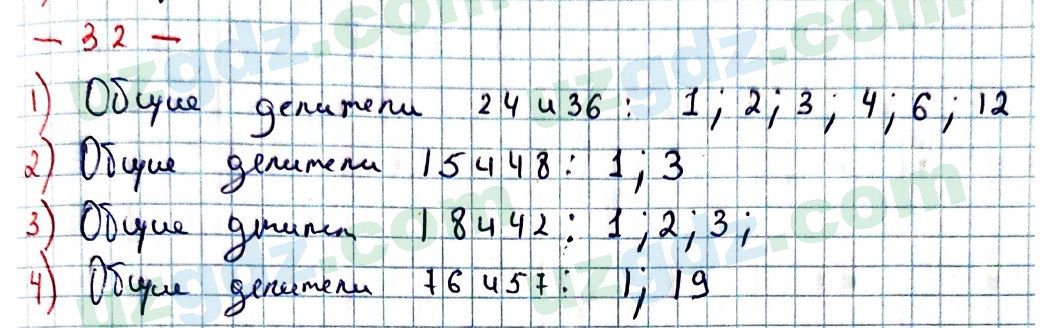 - 32 -
1) Общие делители 24 и 36 : 1 ; 2 ; 3 ; 4 ; 6 ; 12
2) Общие делители 15 и 48 : 1 ; 3
3) Общие 18 и 42 : 1 ; 2 ; 3 ;
4) Общие делители 76 и 57 : 1 ; 19
uzgdz.com
uzgdz.com
uzgdz.com